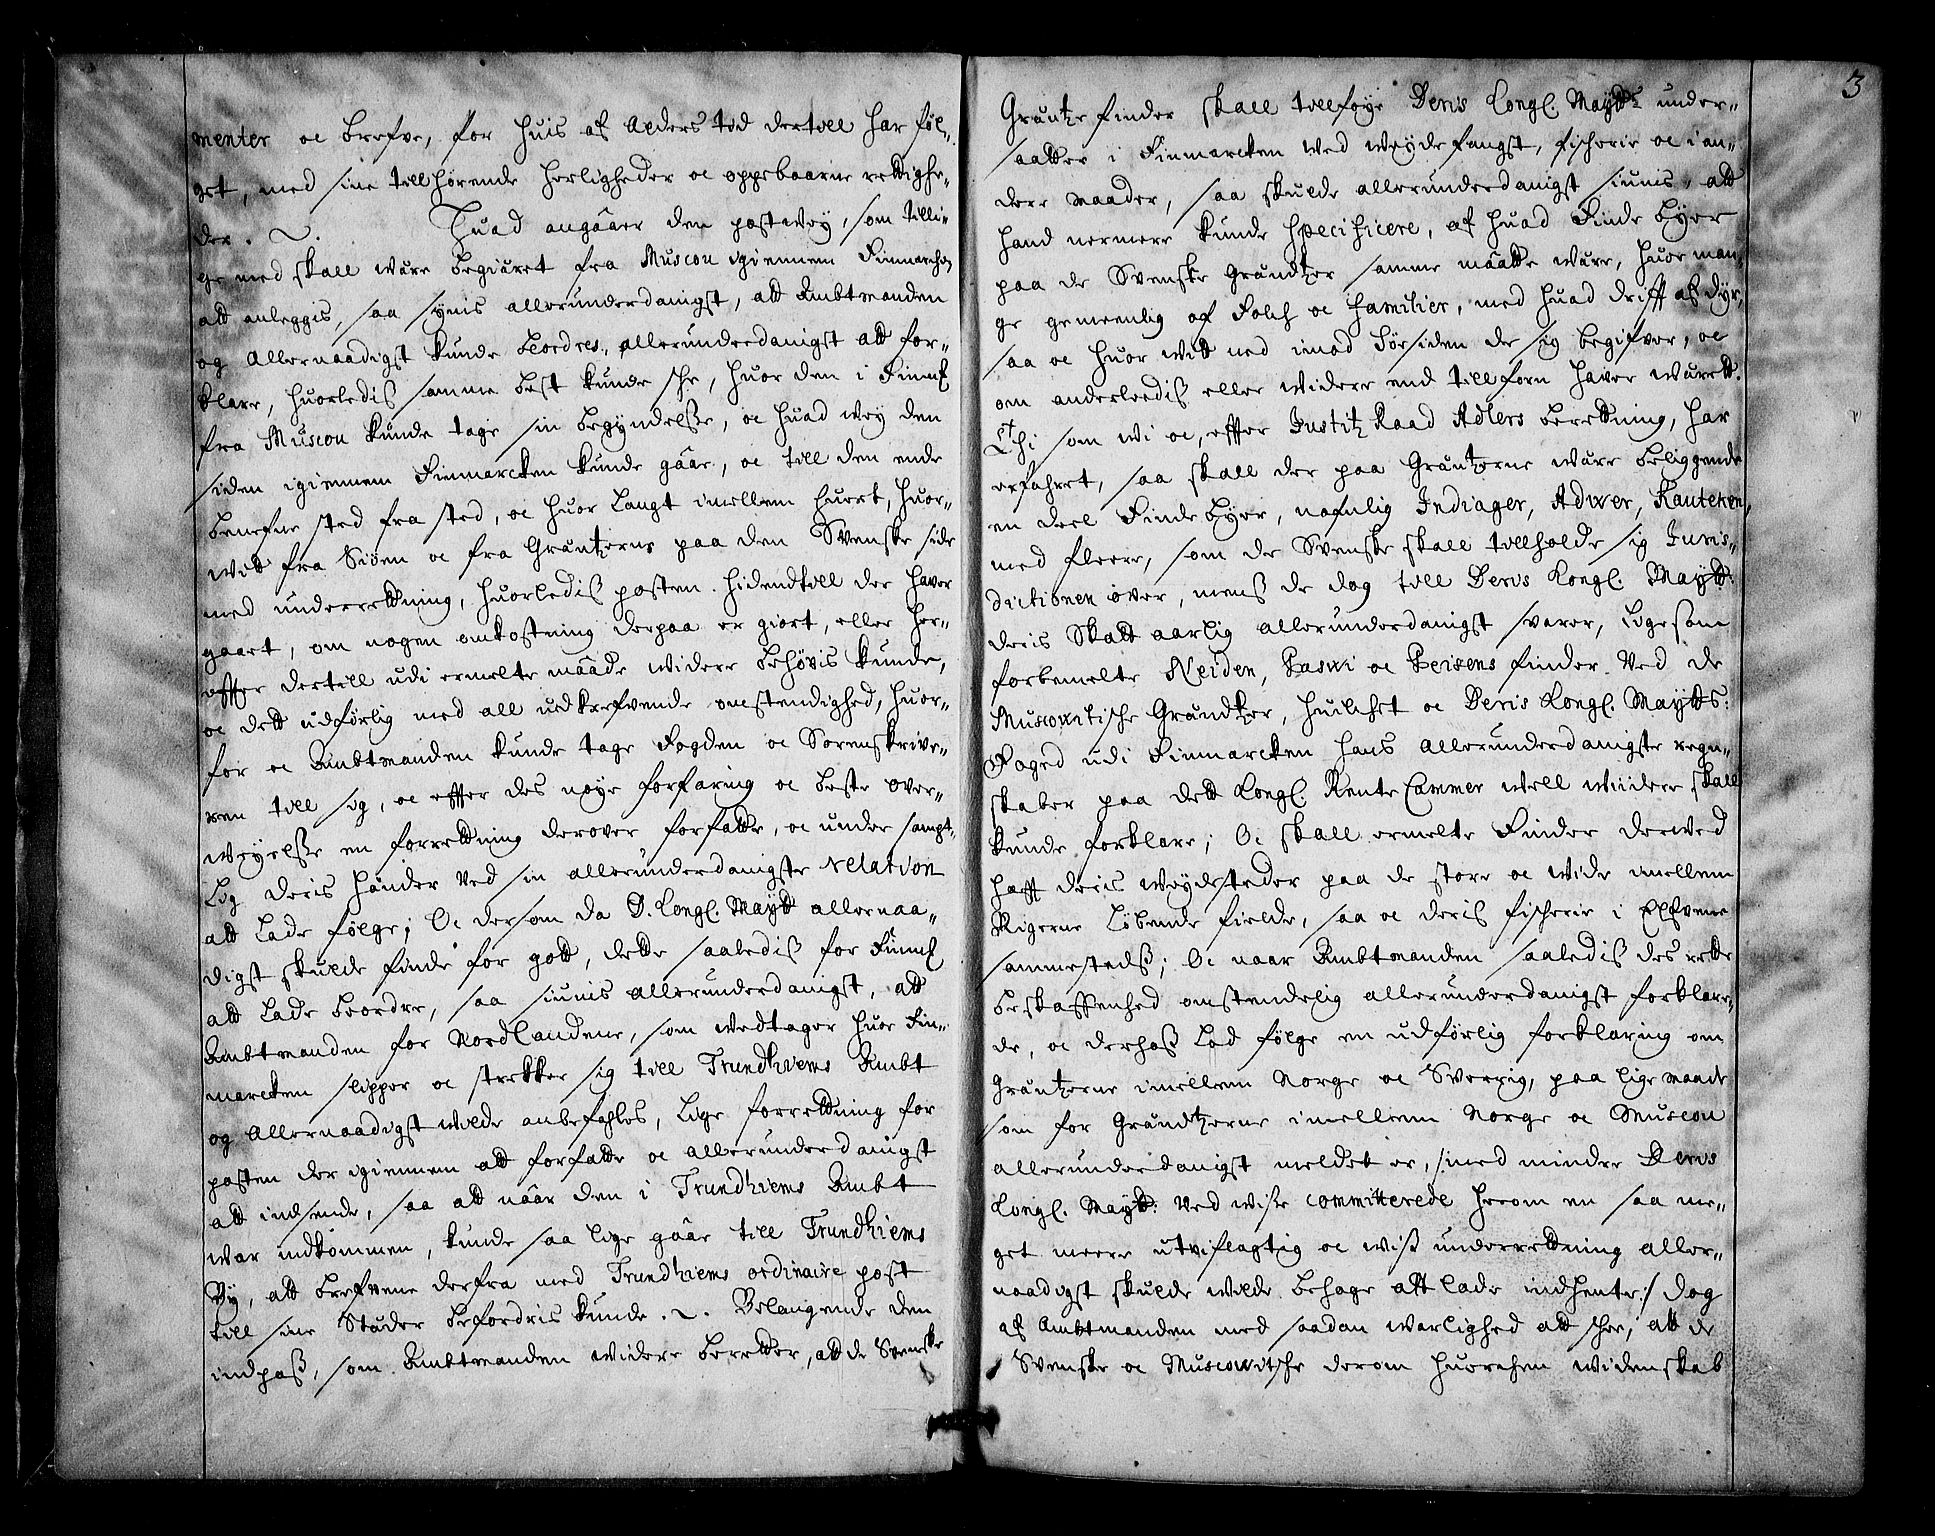 menter oc brefve, for huis af Alders tid dertill har føl-
get, med sine tillhørende herligheder oc oppebaarne rettighe-
der. Huad angåaer den postvey, som tilli-
ge med skall være begiæret fra Muscou igiennem Finmarchen
att anleggis, saa synis allerunderdanigst, att Ambtmanden
og Allernaadigst kunde beordres, allerunderdanigst att for-
klare, huorledis samme best kunde skee, huor den i Finmk
fra Muscou kunde tage sin begyndelsse, oc huad vey den
siden igiennem Finmarcken kunde gåae, oc till den ende
benefne sted fra sted, oc huor langt imellem huert, huor-
vit fra Siøen oc fra Gräntzerne paa den Svenske side
med underretning, huorledis posten hidendtill der hafver
gaaet, om nogen omkostning derpaa er giort, eller her-
effter dertill udi ermelte måade widere behøvis kunde,
oc dett udførlig med all udkrefvende omstendighed, huor-
for oc Ambtmanden kunde tage Fogden oc Sorenskrive-
ren till sig, oc effter des nøye forfaring oc beste over-
weyelsse en forretning derover forfatte, oc under sampt-
lig deris hånder ved sin allerunderdanigste relation
att lade følge; Oc dersom da D. Kongl. Maytt allernaa-
digst skulde finde for gott, dette saaledis for Finmk
att lade beordre, saa siunis allerunderdanigst, att
Ambtmanden for Nordlandene, som vedtager huor Fin-
marcken slipper oc strekker sig till Trundhiems Ambt
og Allernaadigst wilde anbefahles, lige forretning for
posten der igiennem att forfatte oc allerunderdanigst
att indsende, saa att nåar den i Trundhiems Ambt
war indkommen, kunde saa lige gåae till Trundhiems
By, att brefvene derfra med Trundhiems ordinaire post
till sine Stæder befordris kunde. Belangende den
indpass, som Ambtmanden widere beretter, att de Svenske
3
Gräntze finder skall tillføye Deris Kongl. Maytts under-
saatter i Finmarcken ved weydefangst, fischerie oc i an-
dere maader, saa skulde allerunderdanigst siunis, att
hand nermere kunde specificere, af huad Finde byer
paa de Svenske Gråndtzer samme måatte være, huor man-
ge gemeenlig af Folch oc familier, med huad drifft af dyr,
saa oc huor vitt ned imod Søesiden de sig begifver, oc
om anderleedis eller widere end tillforn haver wæret.
Thi som wi oc, effter Justitz Raad Adlers beretning, har
erfahret, saa skall der paa Gräntzerne være beliggende
en deel Finde Byer, nafnlig Indiager, Adwer, Kauteken,
med fleere, som de Svenske skall tillholde sig Juris-
dictionen över, mens de dog till Deris Kongl. Maytt:
deris Skatt aarlig allerunderdanigst svarer, ligesom
forbemelte Neiden, Paswi oc Peisens finder ved de
Muscowitische Gråndtzer, huilchet oc Deris Kongl. Maytts:
Foged udi Finmarcken hans allerunderdanigste regn-
skaber paa dett Kongl. Rente Cammer well wiidere skall
kunde forklare; Oc skall ermelte Finder derved
hafft deris weydesteder paa de store oc wide imellem
Rigerne løbende fielde, saa oc deris fischerie i Elfvene
sammesteds; Oc naar Ambtmanden saaledis des rette
beskaffenhed omstendelig allerunderdanigst forklare-
de, oc derhos lod følge en udførlig forklaring om
Gräntzerne imellem Norge oc Sverrig, paa lige maade
som for Gråndtzerne imellem Norge oc Muscou
allerunderdanigst meldet er, /:med mindre Deris
Kongl. Maytt: ved wisse committerede herom en saa me-
get meere utviflagtig oc wiss underretning aller-
naadigst skulde wilde behage att lade indhente:/ dog
af Ambtmanden med saadan varlighed att skee, att de
Svenske oc Muscowitsche derom huerchen widenskab